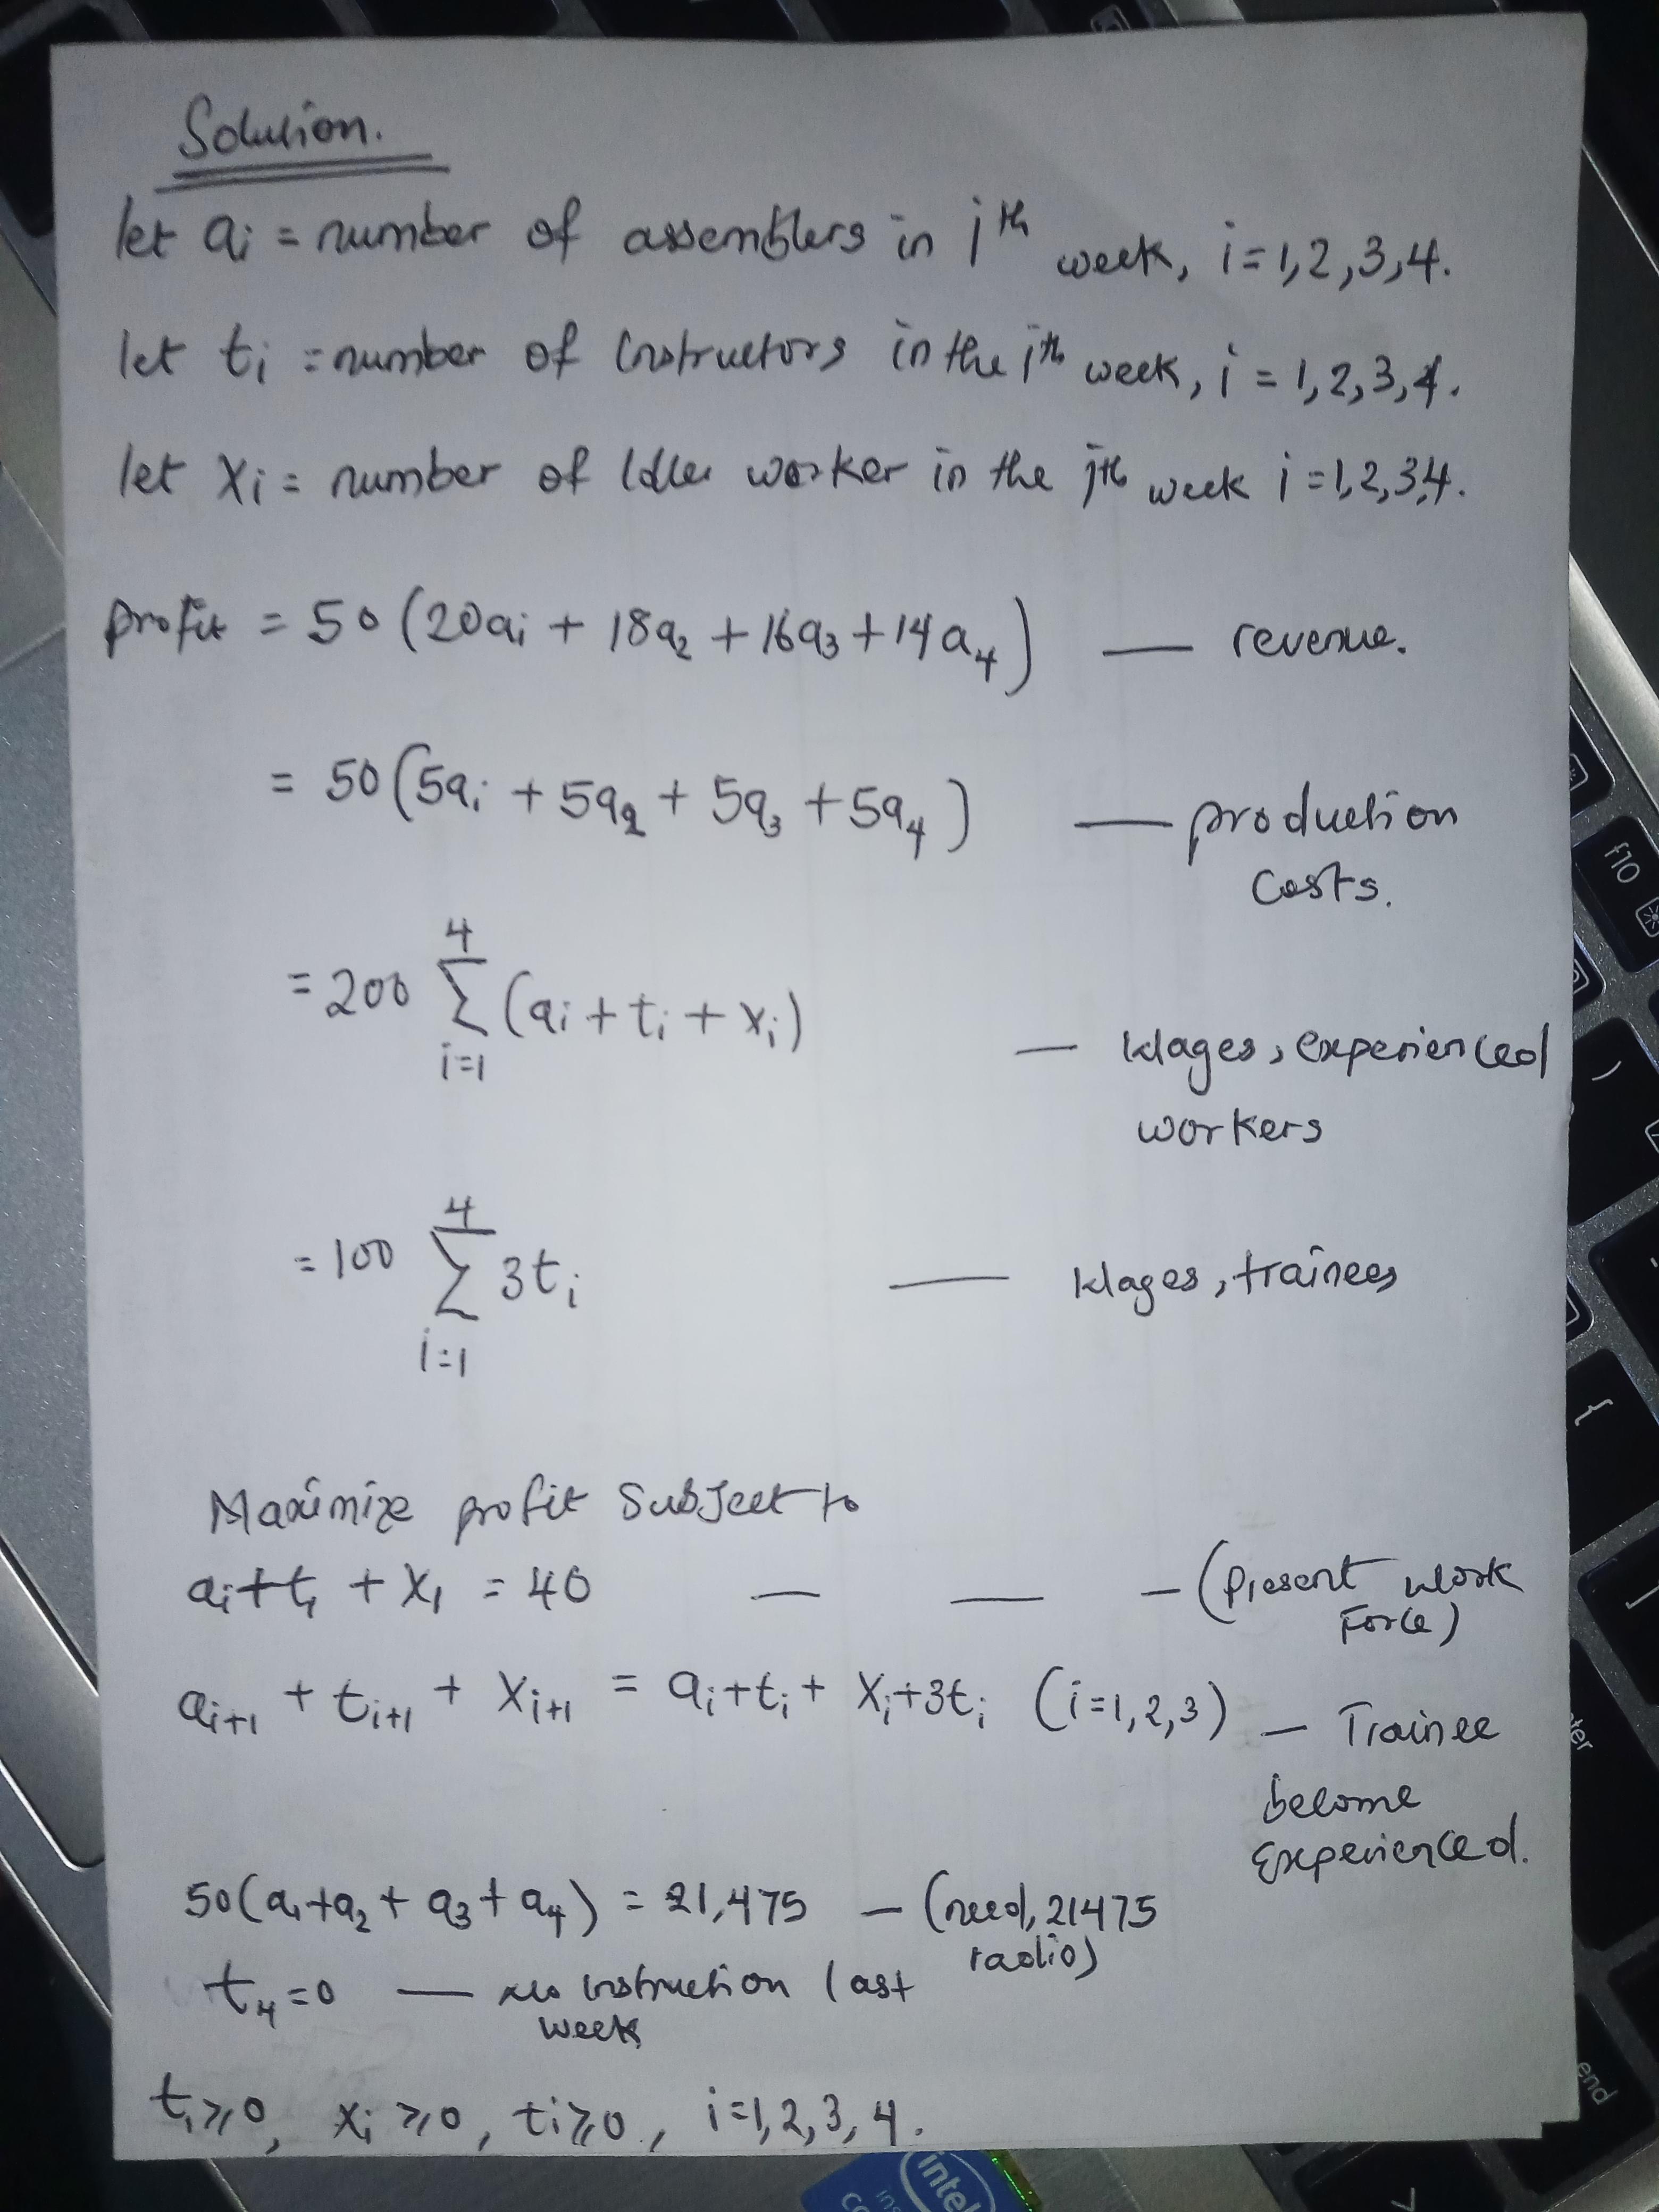 Solution.
let ai = number of assemblers in ith week, i=1,2,3,4.
let ti = number of Instructors in the ith week, i = 1,2,3,4.
let xi = number of Idle worker in the ith week i=1,2,3,4.
Profit = 50(20ai + 18a2 + 16a3 + 14a4) — revenue.
= 50(5ai + 5a2 + 5a3 + 5a4) — production
Costs.
= 200 4∑i=1 (ai + ti + xi) — Wages, experienced
workers
= 100 4∑i=1 3ti — Wages, trainees
Maximize profit Subject to
ai+ti + x1 = 40 — — — (Present work
Force)
ai+1 + ti+1 + xi+1 = ai+ti+ xi+3ti (i=1,2,3) — Trainee
become
Experienced.
50(a1+a2+ a3+ a4) = 21,475 — (need, 21475
radio)
t4=0 — no Instruction last
week
ti≥0, xi ≥0, ti≥0, i=1,2,3,4.
f10
end
intel